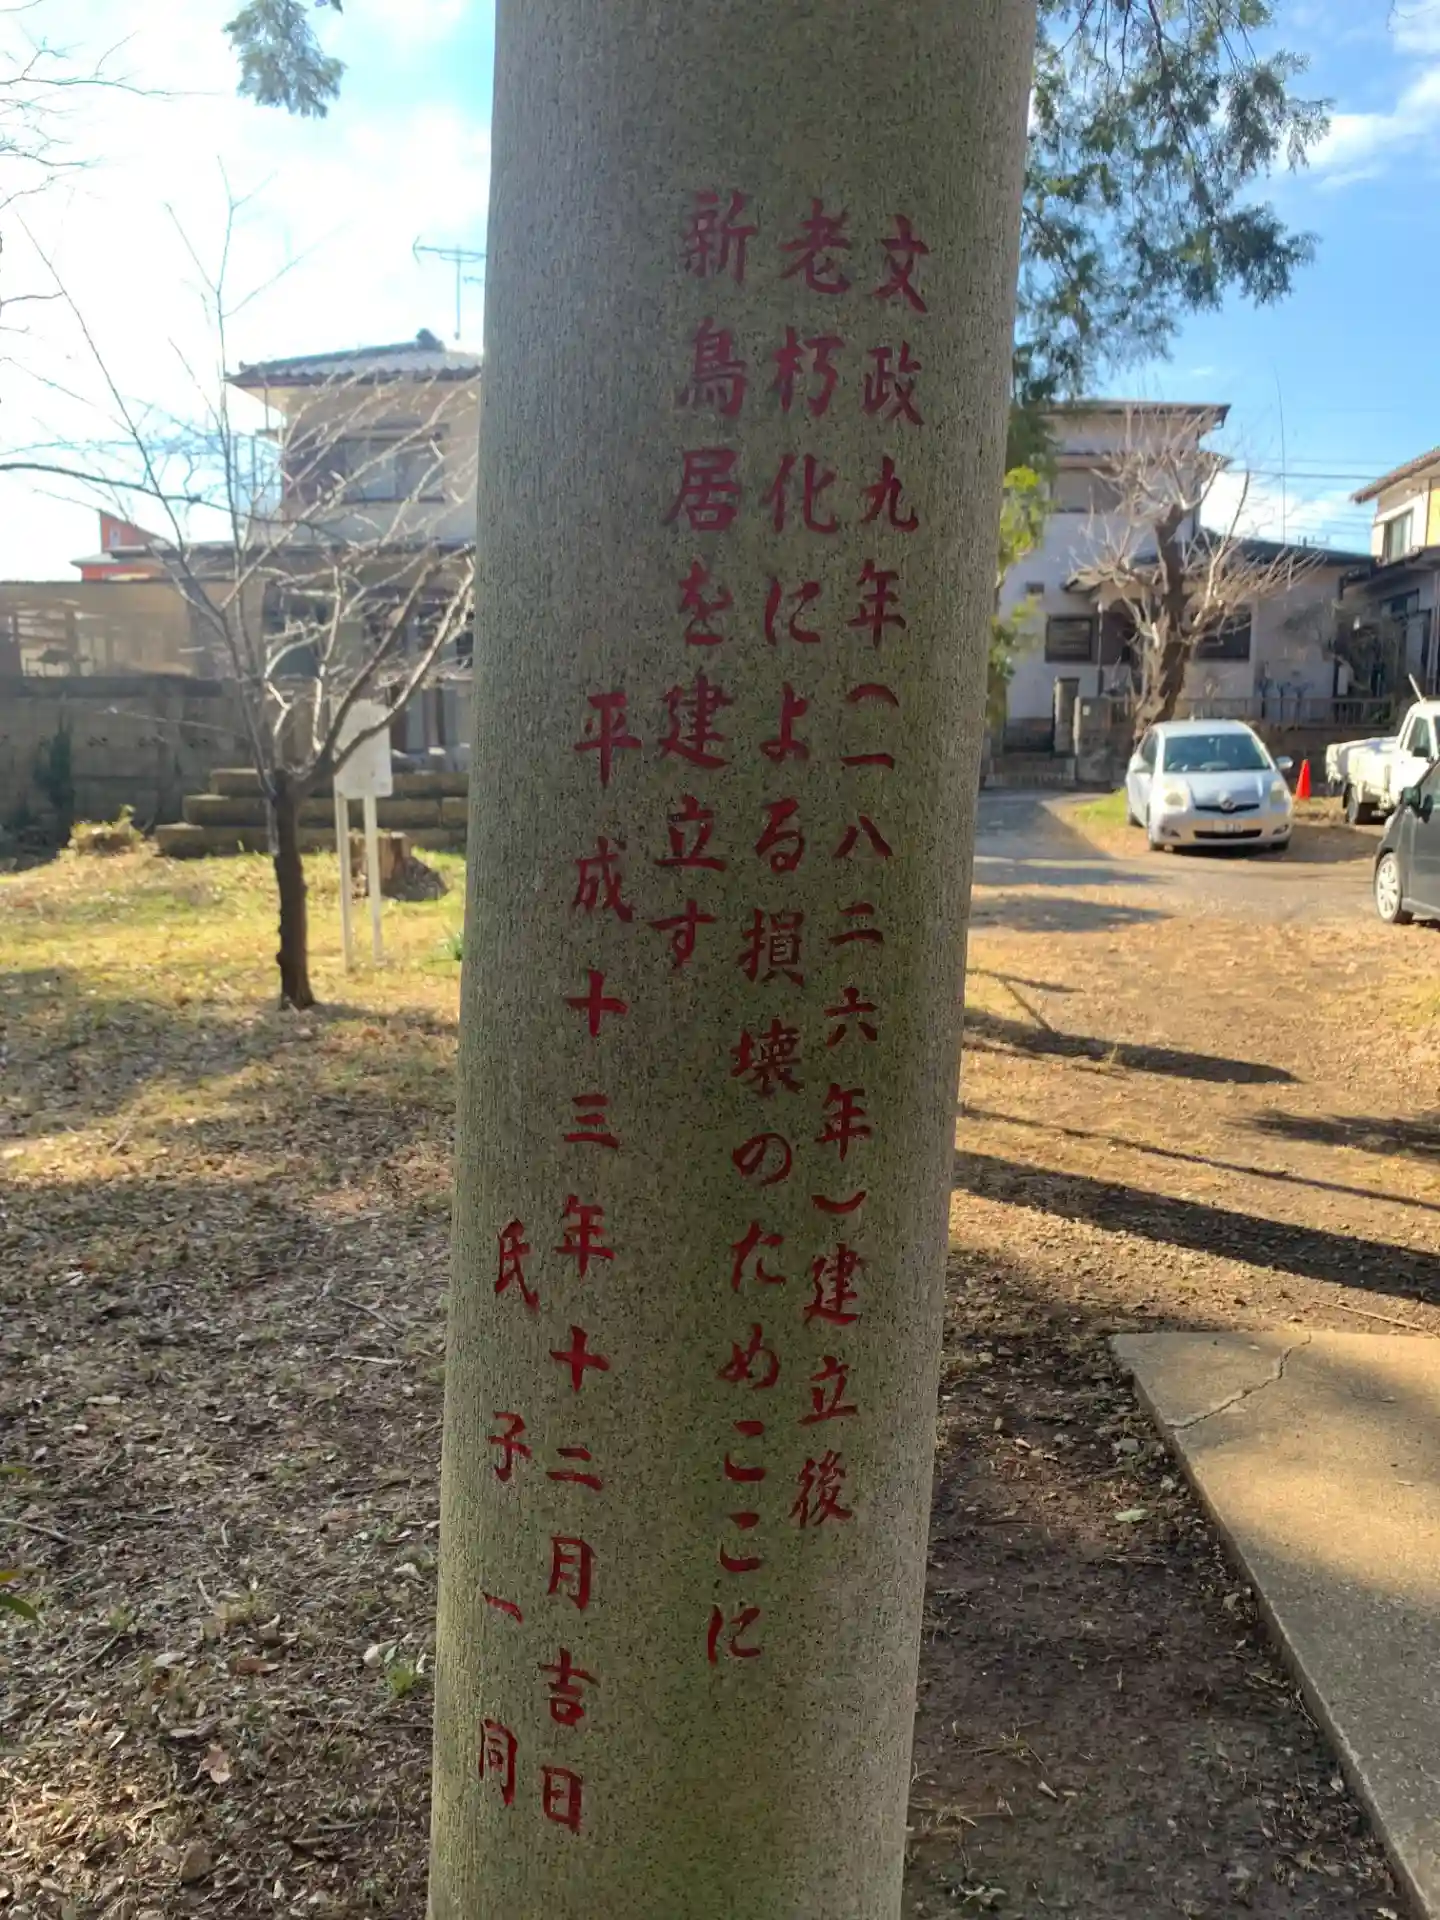 文政九年（一八二六年）建立後
老朽化による損壊のためここに
新鳥居を建立す
平成十三年十二月吉日
氏子一同